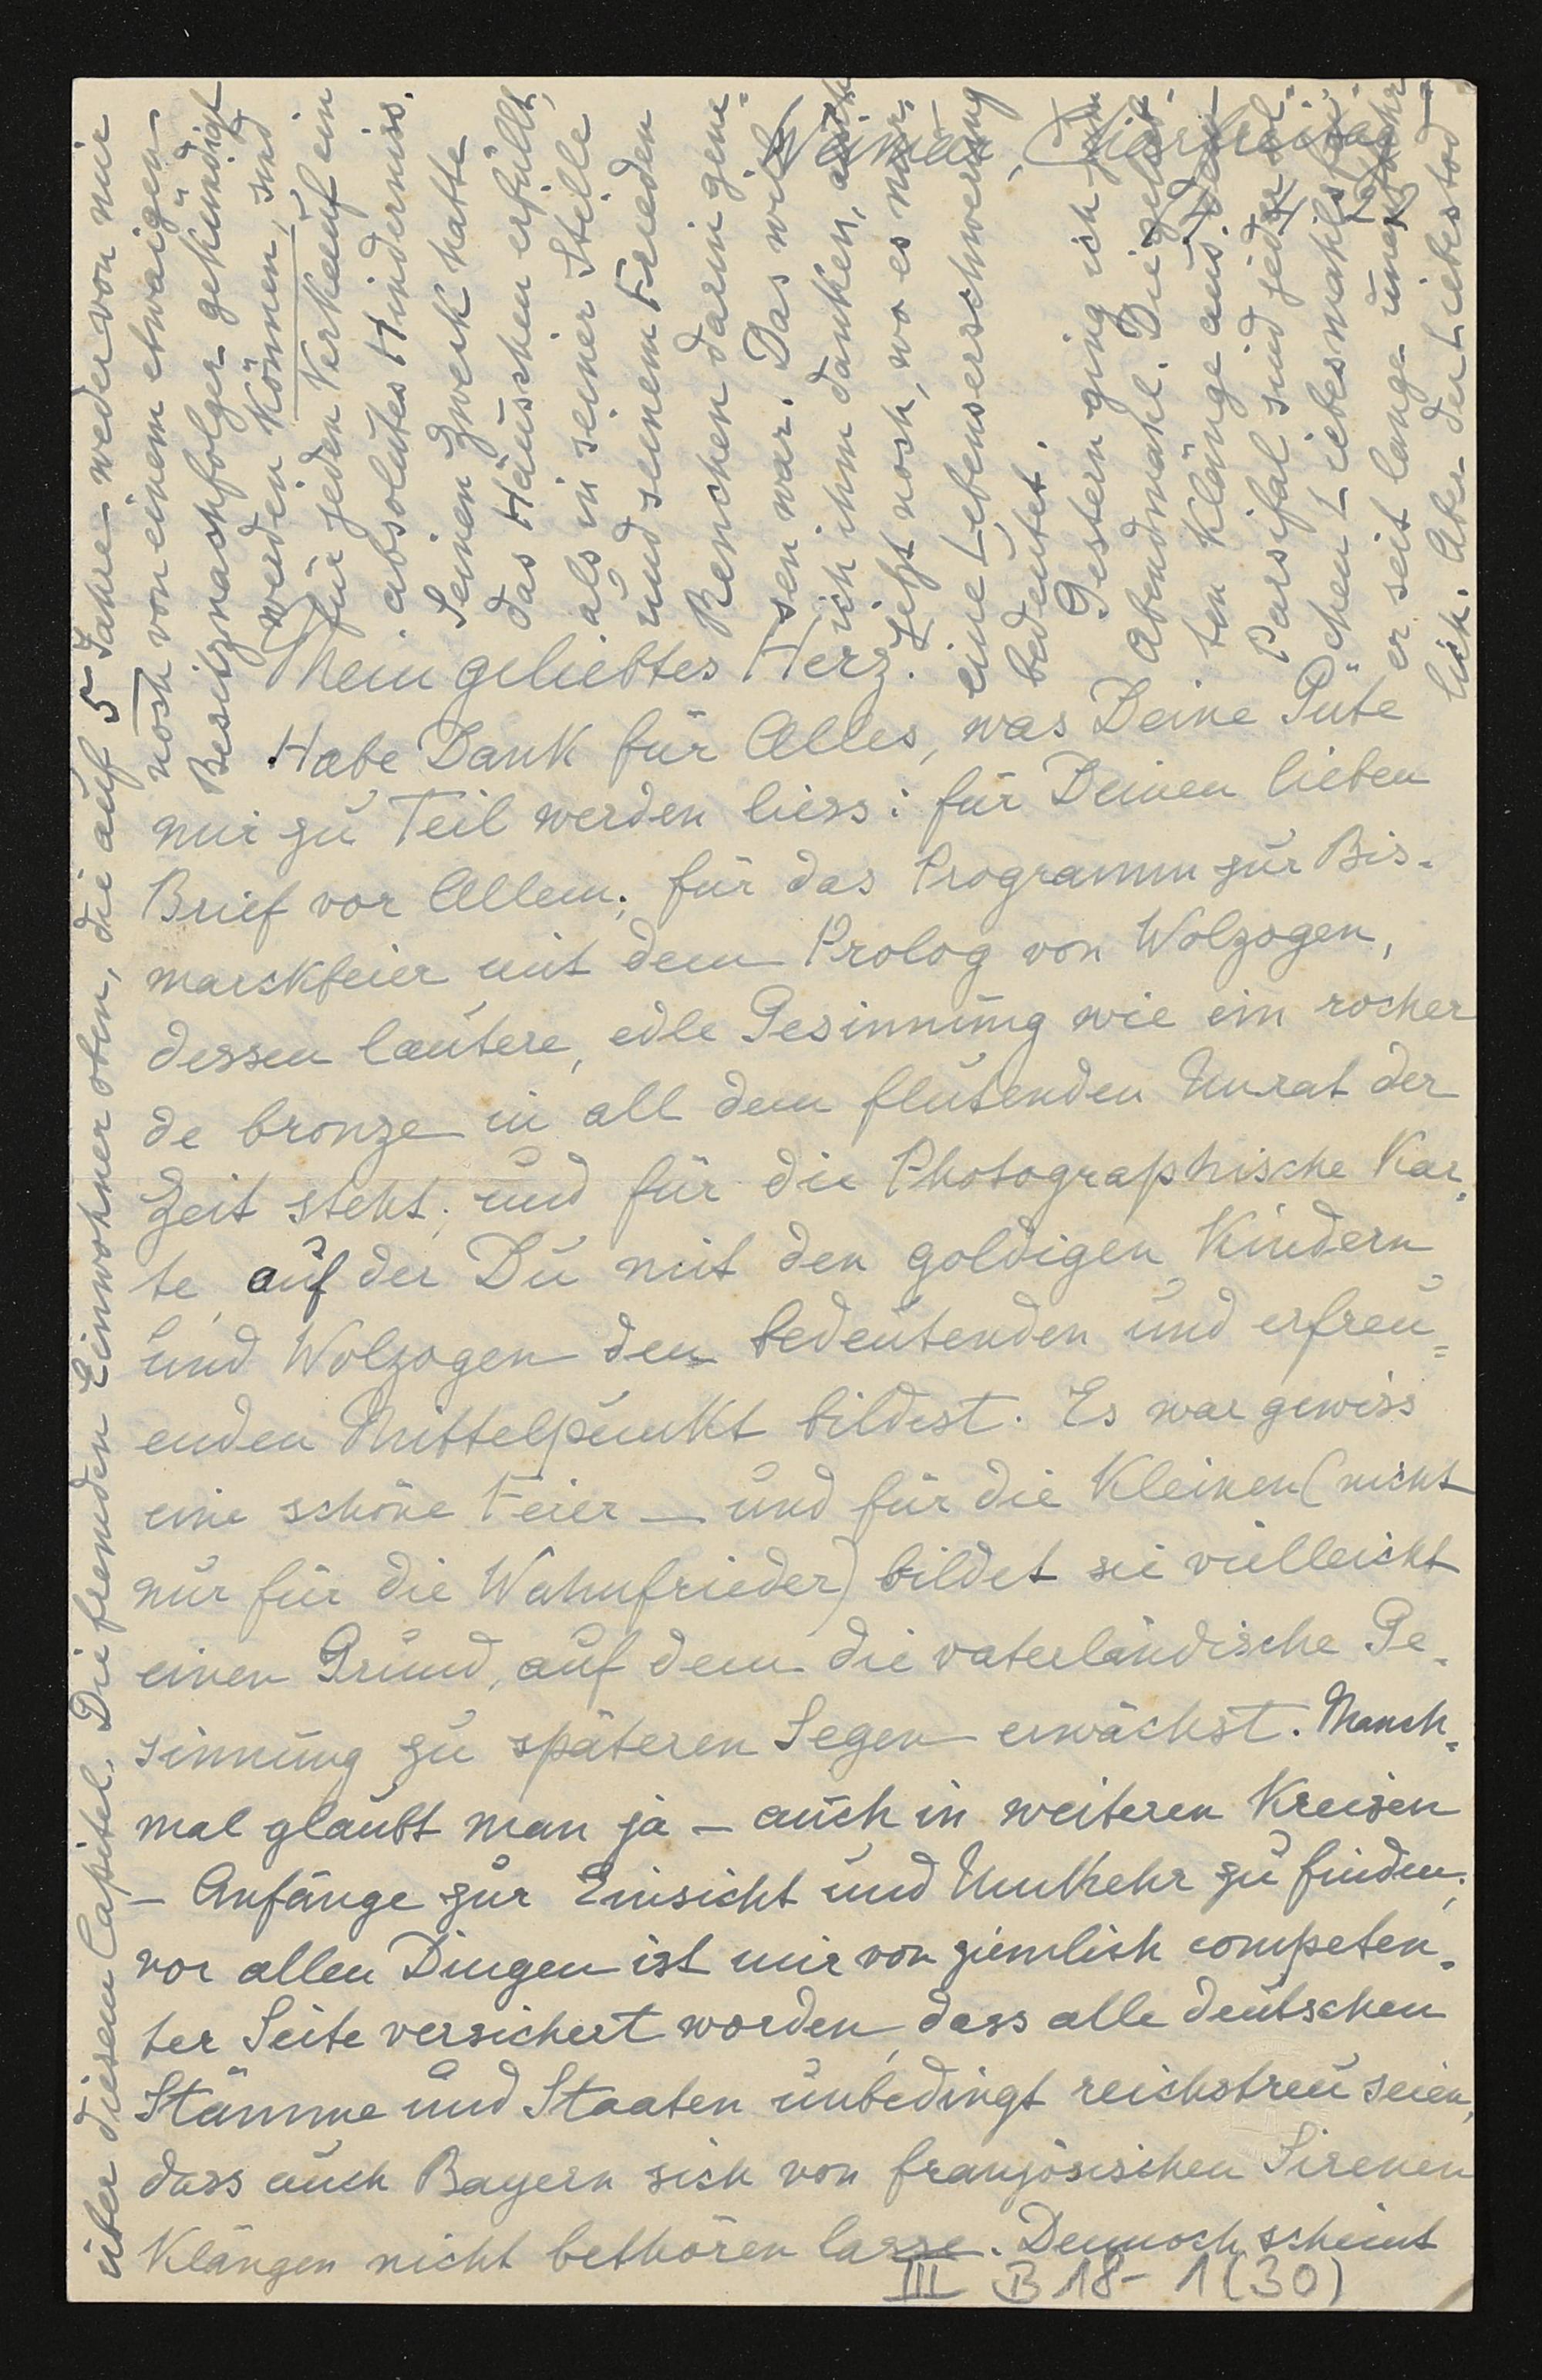 Weimar, Charfreitag
Mein geliebtes Herz.
Habe Dank für Alles, was Deine Güte
mir zu Teil werden liess: für Deinen lieben
Brief vor Allem; für das Programm zur Bis-
marckfeier mit dem Prolog von Wolzogen,
dessen lautere, edle Gesinnung wie ein rocher
de bronze in all dem flutenden Unrat der
Zeit steht; und für die Photographische Kar-
te, auf der Du mit den goldigen Kindern
und Wolzogen den bedeutenden und erfreu=
enden Mittelpunkt bildest. Es war gewiss
eine schöne Feier — und für die Kleinen (nicht
nur für die Wahnfrieder) bildet sie vielleicht
einen Grund, auf dem die vaterländische Ge-
sinnung zu späteren Segen erwächst. Manch=
mal glaubt man ja — auch in weiteren Kreisen
— Anfänge zur Einsicht und Umkehr zu finden;
vor allen Dingen ist mir von ziemlich competen-
ter Seite versichert worden, dass alle deutschen
Stämme und Staaten unbedingt reichstreu seien,
dass auch Bayern sich von französischen Sirenen
Klängen nicht bethören lasse. Dennoch scheint
III B 18- 1 (30)
über diesem Capitel. Die fremden Einwohner oben, die auf 5 Jahre weder von mir
noch von einem etwaigen
Besitznachfolger gekündigt
werden können, sind
für jeden Verkauf ein
absolutes Hinderniss.
Seinen Zweck hatte
das Häuschen erfüllt,
als in seiner Stille
und seinem Frieden
Benchen darin gene=
sen war. Das will
ich ihm danken, auch
jetzt noch, wo es nur
eine Lebenserschwerung
bedeutet.
Gestern ging ich zum
Abendmahl. Die
ten Klänge aus dem
Parsifal sind jeder
chen Liebesmahls
er seit lange
lich. Aber der Liebestod —